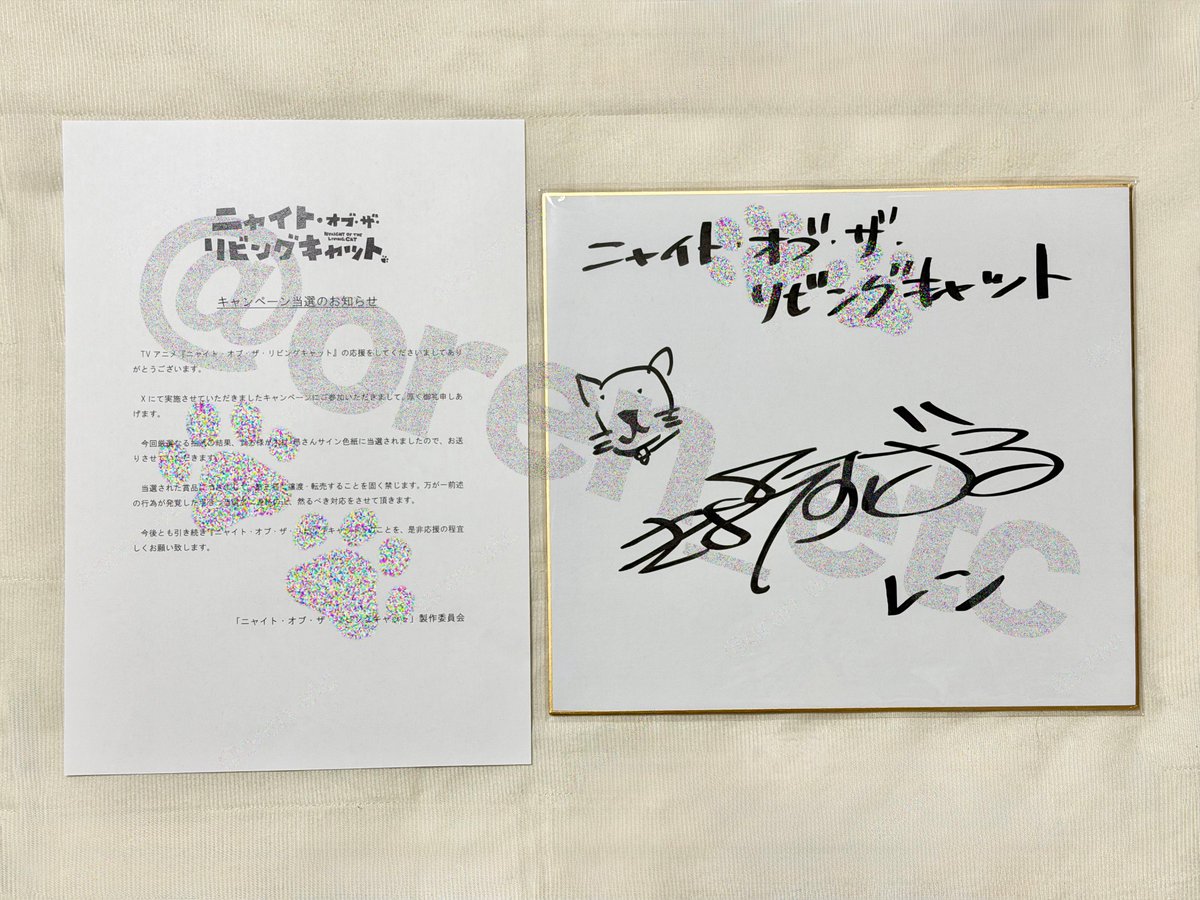 ニャイト・オブ・ザ・
NYAIGHT OF THE LIVING CAT
リビングキャット
キャンペーン当選のお知らせ
TVアニメ『ニャイト・オブ・ザ・リビングキャット』の応援をしてくださいましてあり
がとうございます。
Xにて実施させていただきましたキャンペーンにご参加いただきまして、厚く御礼申しあ
げます。
今回厳選なる の結果、 さんサイン色紙に当選されましたので、お送
りさせていただきます。
当選された賞品 譲渡・転売することを固く禁じます。万が一前述
の行為が発覚した 然るべき対応をさせて頂きます。
今後とも引き続き『ニャイト・オブ・ザ・ キャット』のことを、是非応援の程宜
しくお願い致します。
「ニャイト・オブ・ザ・リビングキャット」製作委員会
ニャイト・オブ・ザ・
リビングキャット
レン